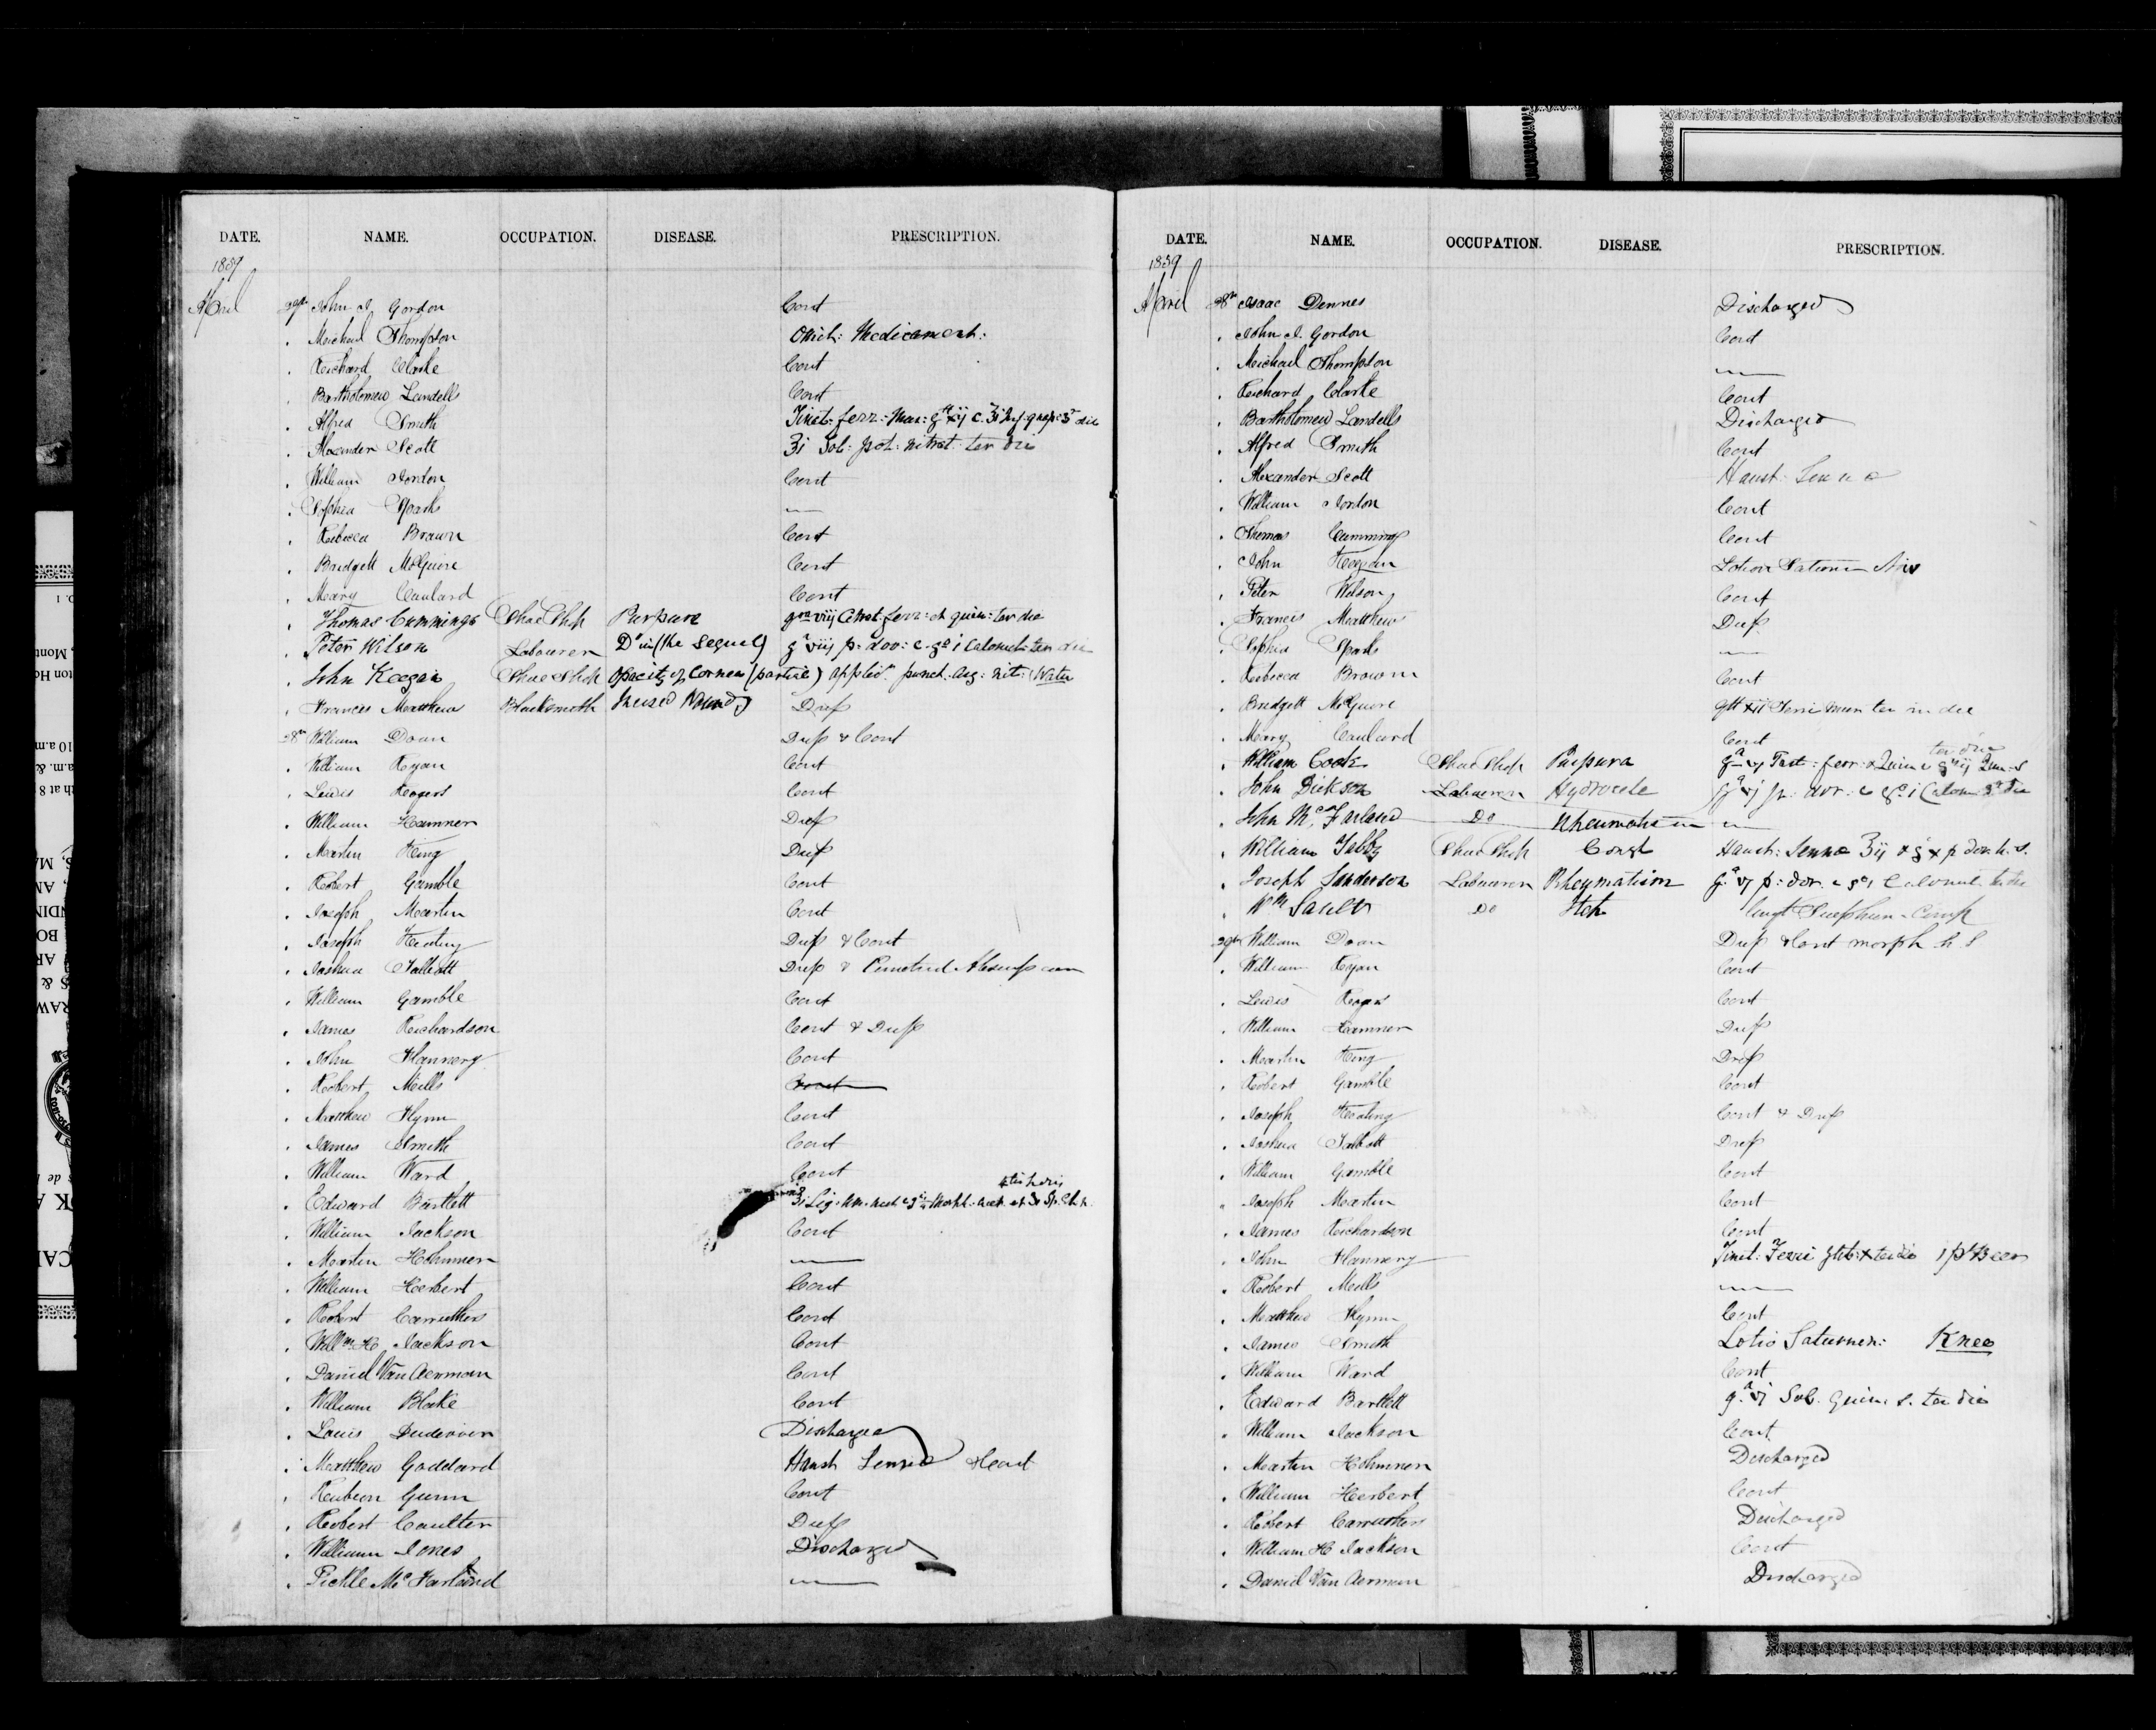 DATE. NAME. OCCUPATION. DISEASE. PRESCRIPTION.
1859
April John I. Gordon Cont
" Michael Thompson Omit: Medicament:
" Richard Clarke Cont
" Bartholomew Landells Cont
" Alfred Smith Tinct: ferr: Mur:
" Alexander Scott ʒi Sol: pot: nitrat: ter die
" William Jordon Cont
" Sophia Sparks —
" Rebecca Brown Cont
" Bridgett McGuire Cont
" Mary Caulard Cont
" Thomas Cummings Shoe Shop Purpura grs viij Citrat ferr: et quin: ter die
" Peter Wilson Labourer Do in (the sequel) gr viij p: dov: c. gr i Calomel: ter die
" John Keegan Shoe Shop Opacity of Cornea (partial) applic. punct. Arg: nit: (Water
" Francis Matthew Blacksmith Incised Wound Dress
28th William Doan Dress & Cont
" William Ryan Cont
" Lewis Rogers Cont
" William Hamner Dress
" Martin King Dress
" Robert Gamble Cont
" Joseph Martin Cont
" Joseph Keating Dress & Cont
" Joshua Talbott Dress &
" William Gamble Cont
" James Richardson Cont & Dress
" John Flannery Cont
" Robert Mills Cont
" Matthew Flynn Cont
" James Smith Cont
" William Ward Cont
" Edward Bartlett
" William Jackson Cont
" Martin Hohmner —
" William Herbert Cont
" Robert Carruthers Cont
" Willm H. Jackson Cont
" Daniel Van Aerman Cont
" William Blake Cont
" Louis Discharged
" Matthew Goddard Haust Senna & Cont
" Reubeon Gunn Cont
" Robert Coulter Dress
" William Jones Discharged
" Pickle McFarland —
DATE. NAME. OCCUPATION. DISEASE. PRESCRIPTION.
1859
April 28th Isaac Dennes Discharged
" John I. Gordon Cont
" Michael Thompson —
" Richard Clarke Cont
" Bartholomew Landells Discharged
" Alfred Smith Cont
" Alexander Scott Haust: Senna
" William Jordon Cont
" Thomas Cummings Cont
" John Keegan Lotion
" Peter Wilson Cont
" Francis Matthew Dress
" Sophia Sparks —
" Rebecca Brown Cont
" Bridgett McGuire gtt xii Ferri Mur ter in die
" Mary Caulard Cont
" William Cook Shoe Shop Purpura ter die
" John Dickson Labourer Hydrocele gr vj p: dov: c gr i Calom
" John McFarland Do Rheumatism —
" William Tabby Shoe Shop Const Haust: Senna ʒij & gr x p dov h. s.
" Joseph Sanderson Labourer Rheymatism gr vj p: dov. c gr i Calomel ter die
" Wm Sault Do Itch Ungt Sulphur Comp
29th William Doan Dress & Cont morph h S
" William Ryan Cont
" Lewis Rogers Cont
" William Hamner Dress
" Martin King Dress
" Robert Gamble Cont
" Joseph Keating Cont & Dress
" Joshua Talbott Dress
" William Gamble Cont
" Joseph Martin Cont
" James Richardson Cont
" John Flannery Tinct: Ferri gtts: x ter die i pt Beer
" Robert Mills —
" Matthew Flynn Cont
" James Smith Lotio Saturnen: Knee
" William Ward Cont
" Edward Bartlett gr vj Sol. Quin. s. ter die
" William Jackson Cont
" Martin Hohmner Discharged
" William Herbert Cont
" Robert Carruthers Discharged
" William H Jackson Cont
" Daniel Van Aerman Discharged